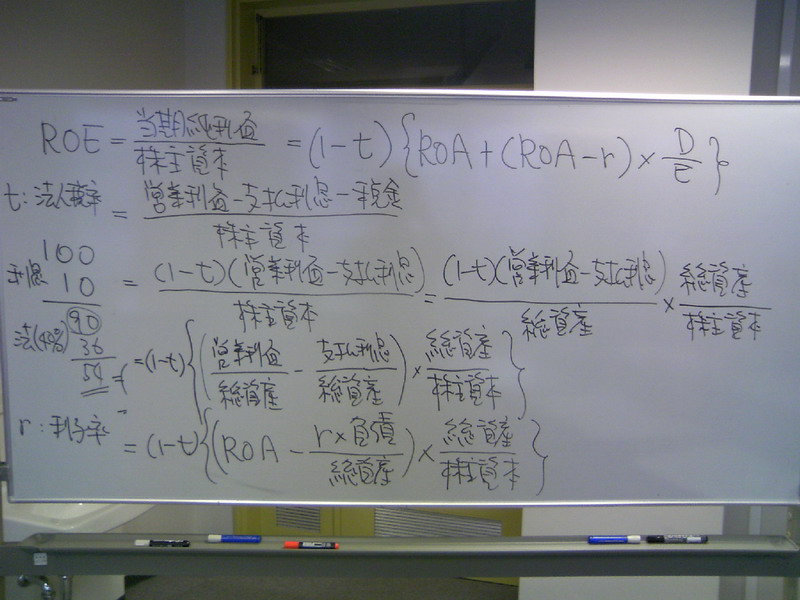 ROE = 当期純利益/株主資本 = (1-t){ROA + (ROA-r) × D/E}
t: 法人税率
= 営業利益-支払利息-税金/株主資本
100
利息 10
90
法(40%) 36
54
= (1-t)(営業利益-支払利息)/株主資本 = (1-t)(営業利益-支払利息)/総資産 × 総資産/株主資本
= (1-t){(営業利益/総資産 - 支払利息/総資産) × 総資産/株主資本}
r: 利子率
= (1-t){(ROA - r×負債/総資産) × 総資産/株主資本}